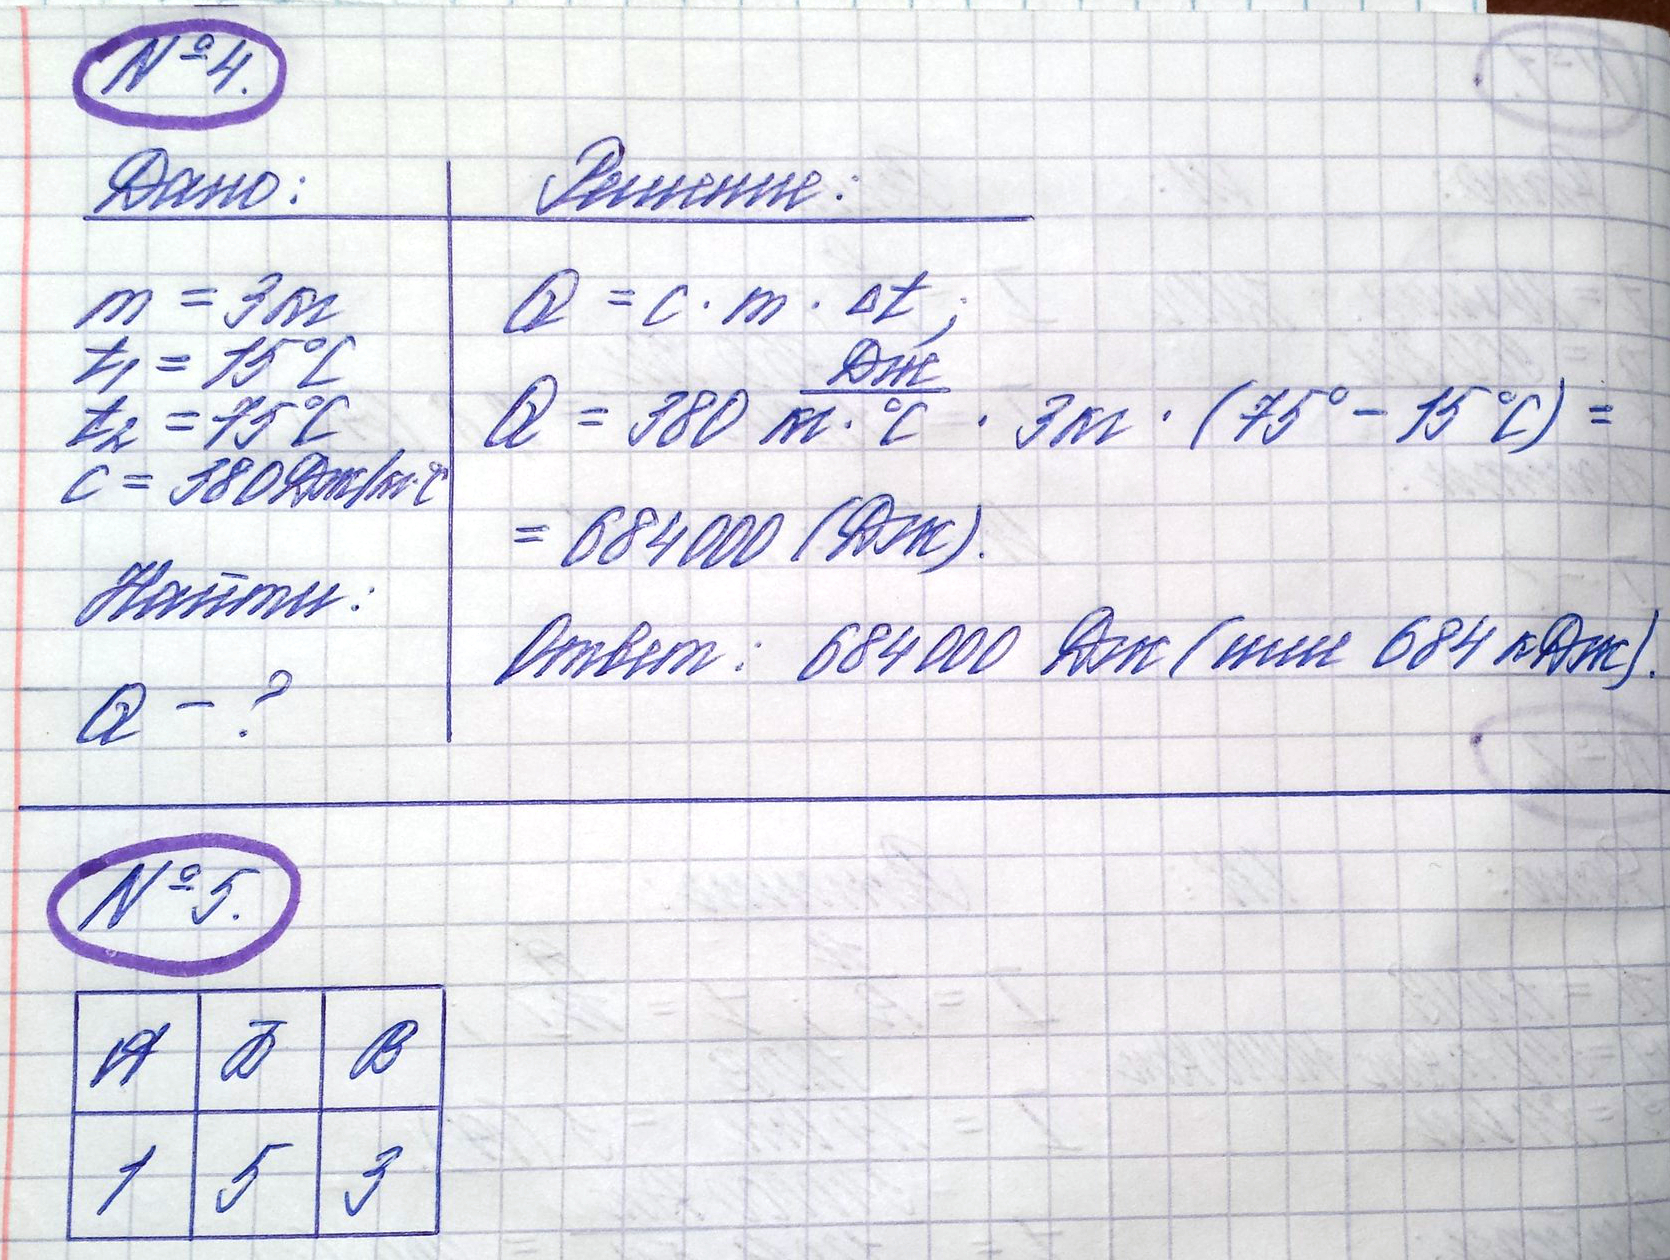 №4.
Дано:
m = 3кг
t₁ = 15°C
t₂ = 75°C
c = 380Дж/кг·°C
Найти:
Q - ?
Решение:
Q = c · m · Δt;
Q = 380 Дж/кг·°C · 3кг · (75° - 15°C) =
= 684000 (Дж).
Ответ: 684000 Дж (или 684 кДж).
№5.
А Б В
1 5 3